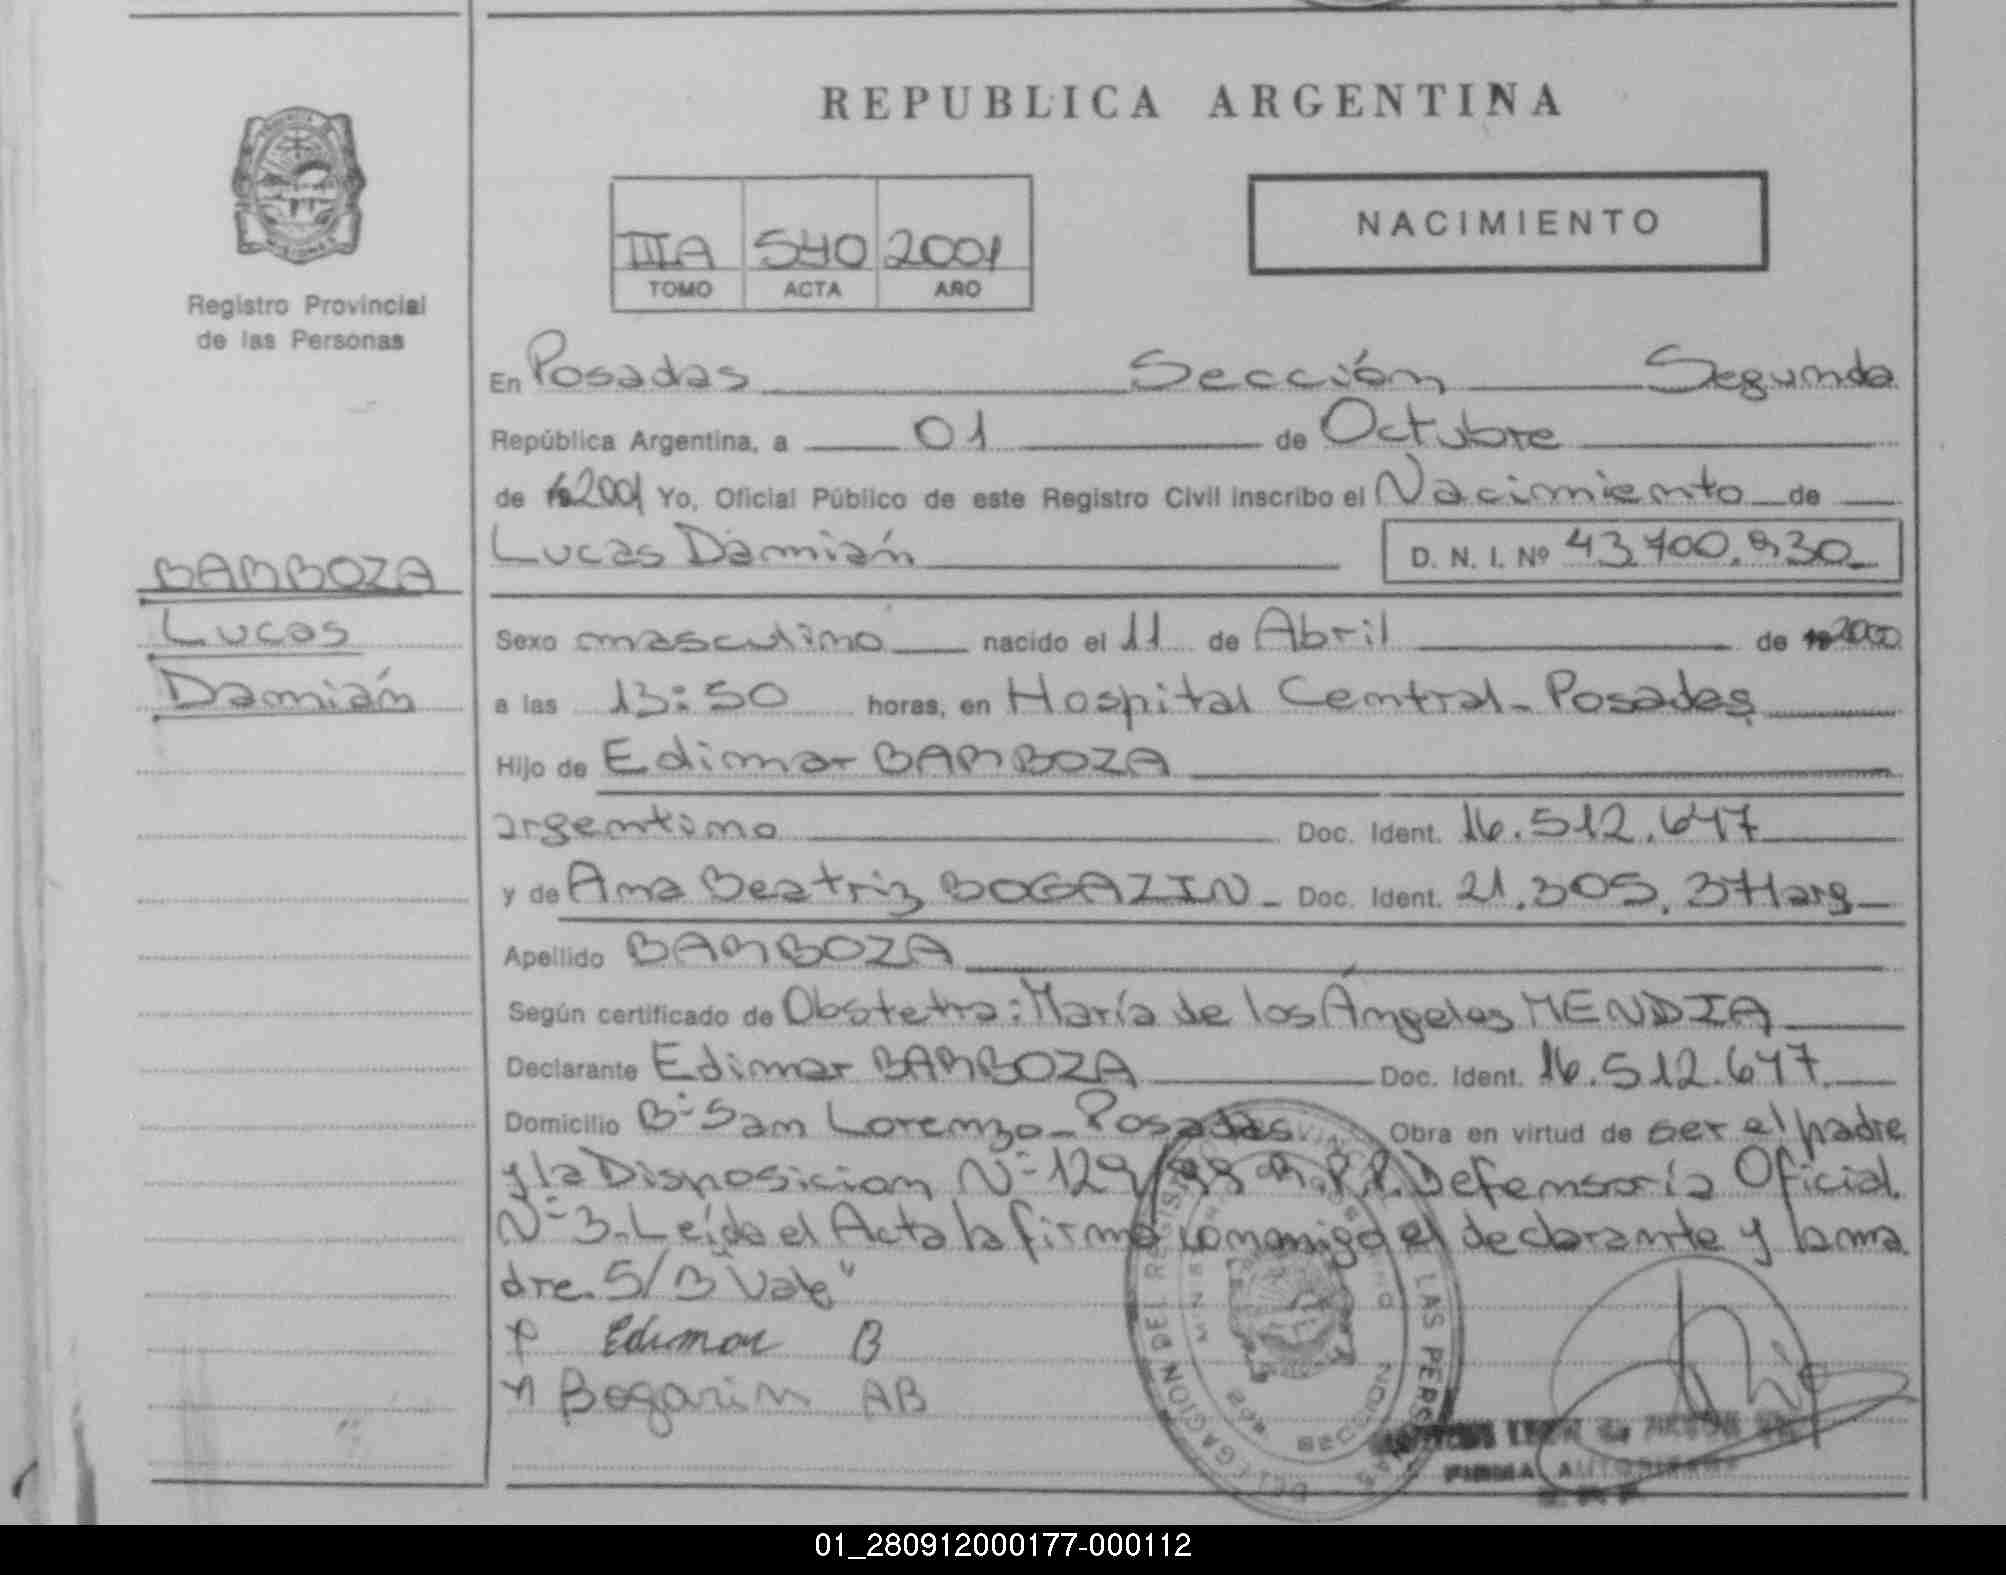 REPUBLICA ARGENTINA
NACIMIENTO
IIIA 540 2001
TOMO ACTA AÑO
Registro Provincial
de las Personas
BARBOZA
Lucas
Damián
En Posadas Sección Segunda
República Argentina, a 01 de Octubre
de 2001 Yo, Oficial Público de este Registro Civil inscribo el Nacimiento de
Lucas Damián D. N. I. Nº 43.700.930
Sexo masculino nacido el 11 de Abril de 2000
a las 13:50 horas, en Hospital Central - Posadas
Hijo de Edimar BARBOZA
argentino Doc. Ident. 16.512.647
y de Ana Beatriz BOGAZIN - Doc. Ident. 21.305.371 arg
Apellido BARBOZA
Según certificado de Obstetra: María de los Ángeles MENDIA
Declarante Edimar BARBOZA Doc. Ident. 16.512.647
Domicilio Bº San Lorenzo - Posadas Obra en virtud de ser el padre
y la Disposicion Nº 129/98 R.P.P. Defensoría Oficial
Nº 3. Leída el Acta la firma conmigo el declarante y la ma
dre. S/B "Vale"
Edimar B
Bogarin AB
DELEGACION DEL REGISTRO LAS PERSONAS
FIRMA AUTORIZADA
01_280912000177-000112